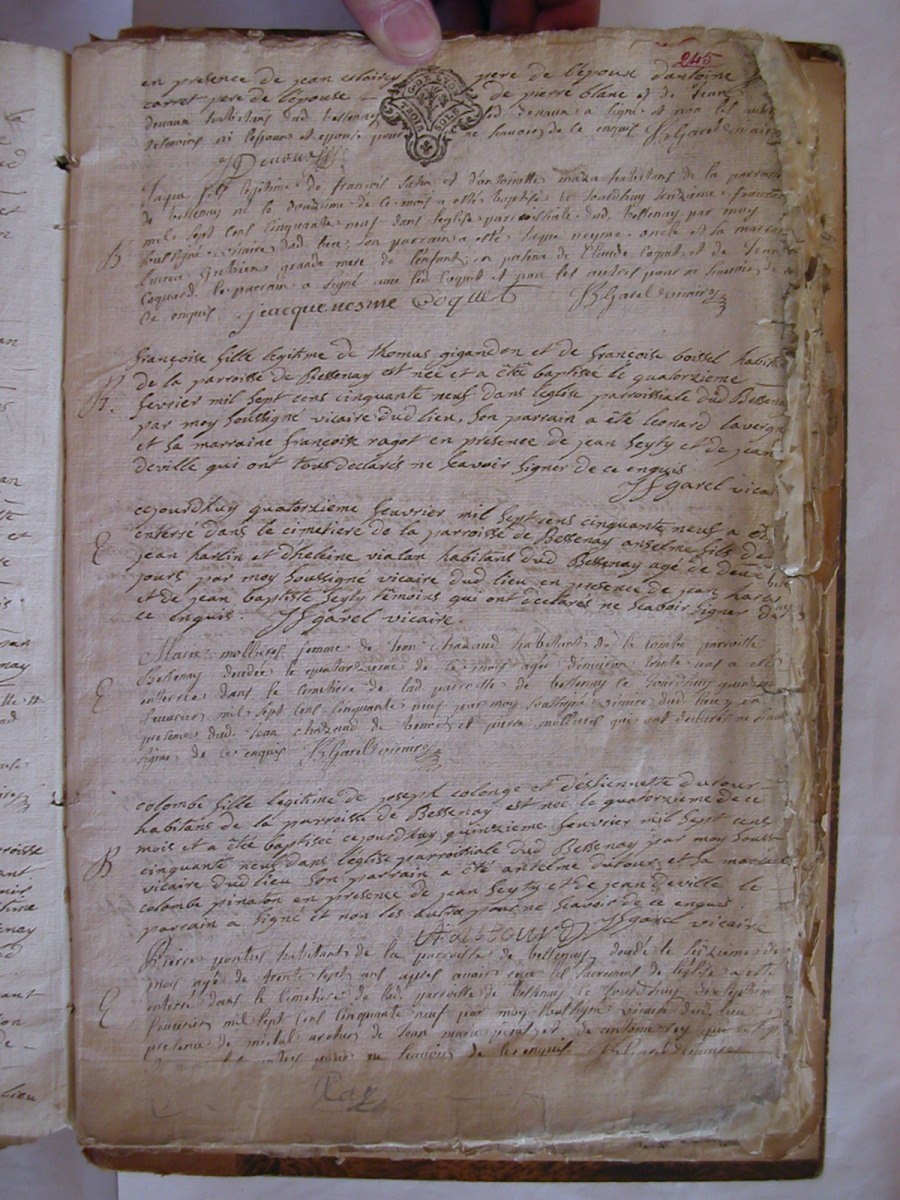 245
en presence de jean pere de l'epoux d'antoine
carret pere de l'epouse de pierre blanc et de Jean
denaux habitans dud bessenay led denaux a signé et non les autres
temoins ni l'epoux et epouse pour ne sçauoir de ce enquis JfGarel vicaire
Denaux
GEN LYO
TROIS SOLS
Jaque fils legitime de francois et d'antoinette maza habitans de la paroisse
de bessenay né le douzieme de ce mois a esté baptisé ce jourdhuy treizieme feurier
mil sept cens cinquante neuf dans leglise parroissiale dud. bessenay par moy
B soussigné vicaire dud lieu, son parrain a esté Jaque neyme oncle et sa marraine
grande mere de l'enfant, en presence de Claude Coquet et de Jean
Coquard le parrain a signé avec led Coquet et non les autres pour ne sçauoir de
Ce enquis jeacque nesme Coquet JfGarel vicaire
françoise fille legitime de thomas gigandon et de françoise boissel habitans
de la parroisse de Bessenay est née et a été baptisé le quatorzieme
B. fevrier mil sept cens cinquante neuf dans l'eglise parroissiale dud Bessenay
par moy soussigné vicaire dud lieu. Son parrain a été leonard lavergne
et sa marraine françoise ragot en presence de jean seyty et de jean
deville qui ont tous declarés ne scavoir signer de ce enquis
JfGarel vicaire
cejourdhuy quatorzieme feavrier mil sept cens cinquante neuf a été
enterré dans le cimetiere de la parroisse de Bessenay anselme fils de
E jean harlin et d'heleine vialan habitans dud Bessenay agé de deux
jours par moy soussigné vicaire dud lieu en presence de jean harlin
et de jean baptiste seyty temoins qui ont declarés ne scavoir signer de
ce enquis. JfGarel vicaire.
Marie mollieres femme de Jean chazaud habitant de la combe parroisse
Bessenay decedée le quatorzieme de ce mois agée d'environ trente ans a esté
E enterrée dans le cemetiere de lad parroisse de bessenay ce jourdhuy quinzieme
feuurier mil sept cens cinquante neuf par moy soussigné vicaire dud lieu en
presence dud. Jean chazaud de benoit et pierre mollieres qui ont declarés ne sçauoir
signer de ce enquis JfGarel vicaire
colombe fille legitime de joseph colonge et d'estiennette dutour
habitans de la parroisse de Bessenay est née le quatorzieme de ce
mois et a été baptisée cejourdhuy quinzieme feavrier mil sept cens
B cinquante neuf dans l'eglise parroissiale dud Bessenay par moy soussigné
vicaire dud lieu son parrain a été antelme dutour et sa marraine
colombe pinaton en presence de jean seyty et de jean deville le
parrain a signé et non les autres pour ne scavoir de ce enquis.
JfGarel vicaire
Pierre pontus habitant de la parroisse de bessenay decedé le seizieme de ce
mois agé de trente sept ans apres auoir reçu les sacremens de l'eglise a esté
E enterré dans le cimetiere de lad. parroisse de bessenay ce jourdhuy dix septieme
feuurier mil sept cens cinquante neuf par moy soussigné vicaire dud lieu en
presence de michel de Jean marie et de antoine rey
les autres pour ne scauoir de ce enquis JfGarel vicaire
Rey